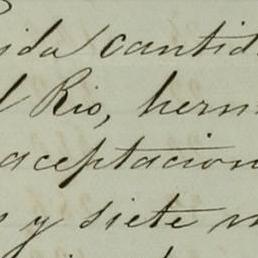 ida cantid
l Rio, herm
aceptacion
s y siete m